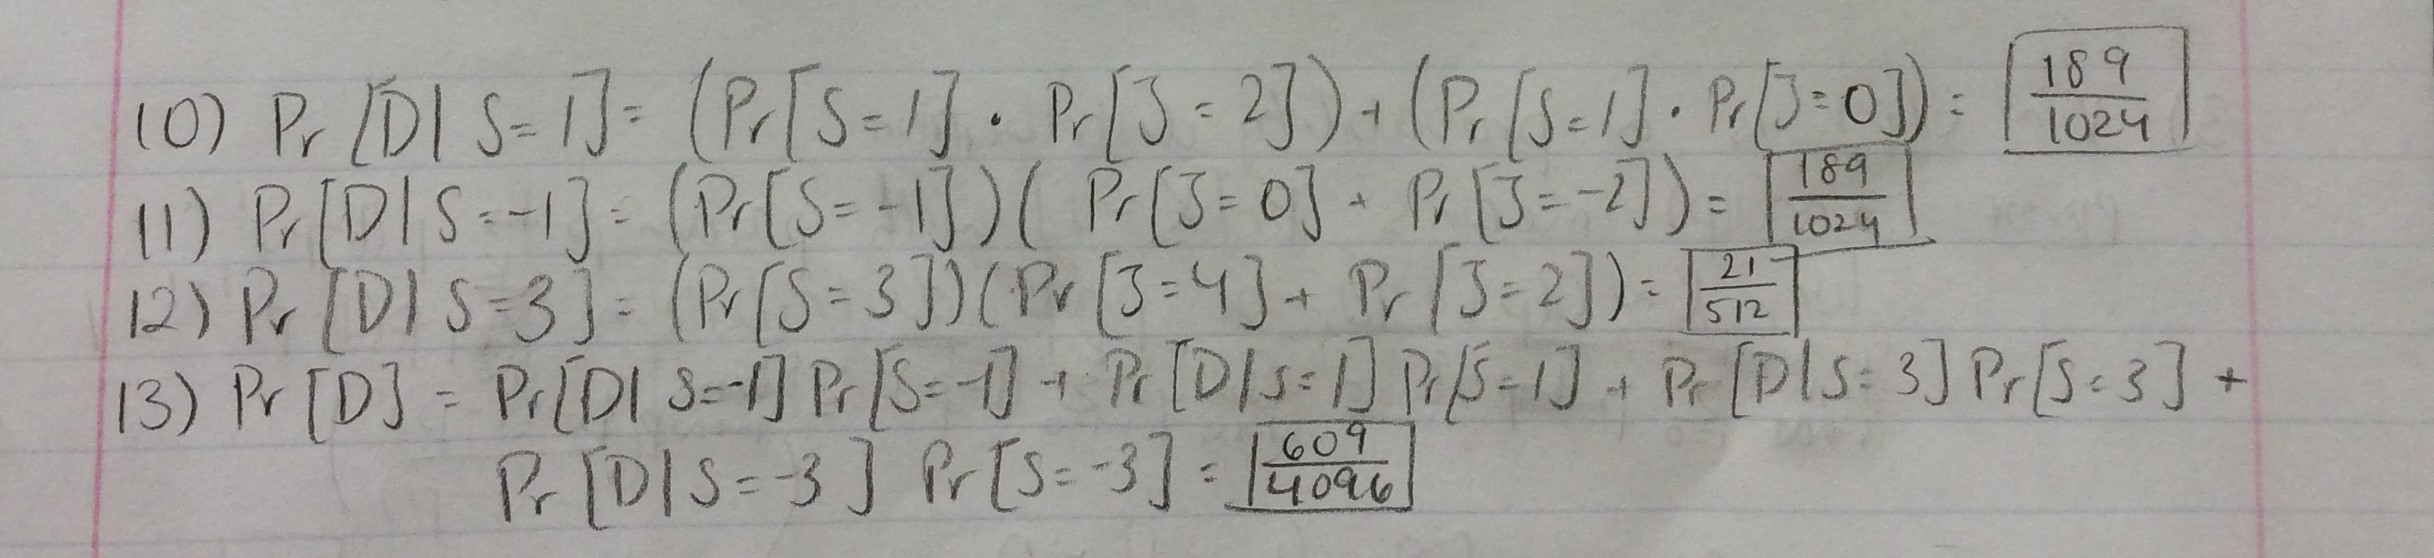 10) Pr[D| S=1] = (Pr[S=1] · Pr[J=2]) + (Pr[S=1] · Pr[J=0]) = 189/1024
11) Pr[D|S=-1] = (Pr[S=-1])(Pr[J=0] + Pr[J=-2]) = 189/1024
12) Pr[D|S=3] = (Pr[S=3])(Pr[J=4] + Pr[J=2]) = 21/512
13) Pr[D] = Pr[D|S=-1]Pr[S=-1] + Pr[D|S=1]Pr[S=1] + Pr[D|S=3]Pr[S=3] +
Pr[D|S=-3] Pr[S=-3] = 609/4096